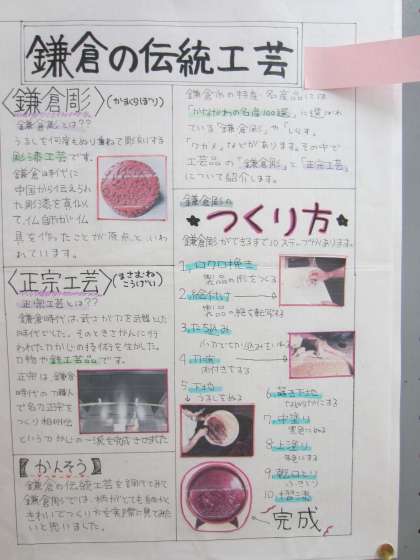 鎌倉の伝統工芸
〈鎌倉彫〉(かまくらぼり)
鎌倉彫とは??
うるしを何度もぬり重ねて彫刻する
彫漆工芸です。
鎌倉時代に
中国から伝えられ
た彫漆を真似し
て、仏師が仏
具を作ったことが原点といわ
れています。
〈正宗工芸〉(まさむねこうげい)
正宗工芸とは??
鎌倉時代は、武士が力を
時代でした。そのときさかんに行
われた刀かじの技術を生かした。
刃物や鉄工芸品です。
正宗は、鎌倉
時代の刀職人
で名刀正宗を
つくり相州伝
という刀かじの一派を完成させました
【かんそう】
鎌倉の伝統工芸を調べてみて
鎌倉彫では、柄がとても細かく
きれいでつくり方を実際に見てみた
いと思いました。
鎌倉市の特産・名産品には
「かながわの名産100選」に選ばれ
ている「鎌倉彫」や「しらす」
「ワカメ」などがあります。その中で
工芸品の「鎌倉彫」と「正宗工芸」
について紹介します。
鎌倉彫の
★つくり方★
鎌倉彫ができるまで10ステップがあります。
1.ロクロ挽き
製品の形をつくる
2.絵付け
製品の 絵を転写する
3.たち込み
小刀で切り込みをいれる
4.刀痕
5.下地
↓うるしをぬる
6.
7.中塗り
8.上塗り
9.乾口とり
10.摺漆
完成